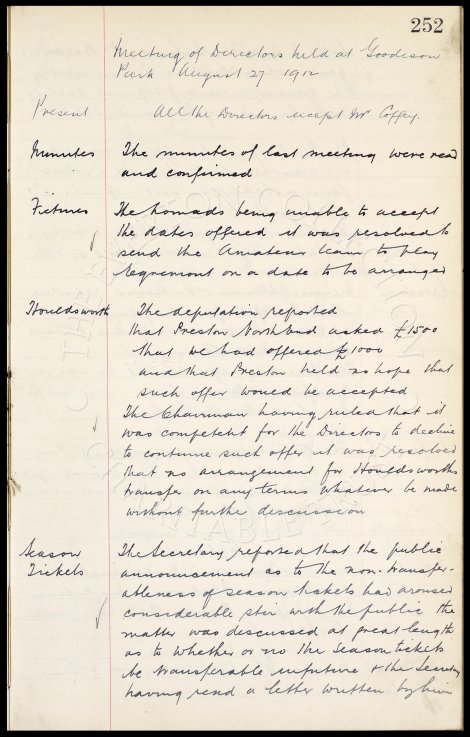 252
Meeting of Directors held at Goodison
Park August 27 1912
Present All the Directors except Mr Coffey.
Minutes The minutes of last meeting were read
and confirmed
Fixtures The Nomads being unable to accept
the dates offered it was resolved to
send the Amateur team to play
Egremont on a date to be arranged
Houldsworth The deputation reported
that Preston North End asked £1500
that we had offered £1000
and that Preston held no hope that
such offer would be accepted
The Chairman having ruled that it
was competent for the Directors to decline
to continue such offer it was resolved
that no arrangement for Houldsworths
transfer on any terms whatever be made
without further discussion
Season The Secretary reported that the public
Tickets announcement as to the non-transfer-
ableness of season tickets had aroused
considerable stir with the public the
matter was discussed at great length
as to whether or no the season tickets
be transferable in future & the Secretary
having read a letter written by him